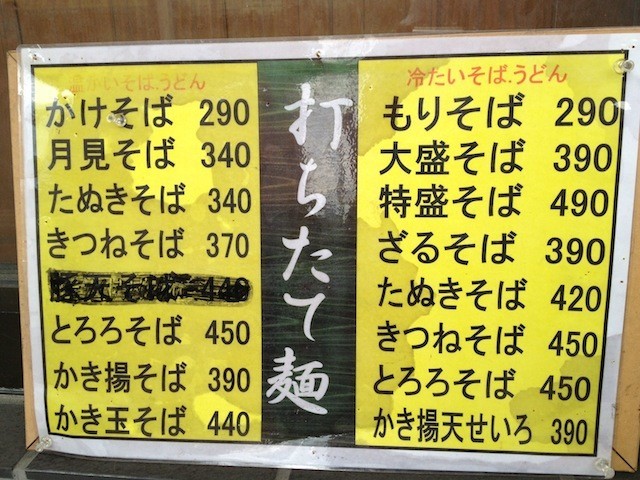 温かいそば.うどん
かけそば 290
月見そば 340
たぬきそば 340
きつねそば 370
440
とろろそば 450
かき揚そば 390
かき玉そば 440
打ちたて麺
冷たいそば.うどん
もりそば 290
大盛そば 390
特盛そば 490
ざるそば 390
たぬきそば 420
きつねそば 450
とろろそば 450
かき揚天せいろ 390